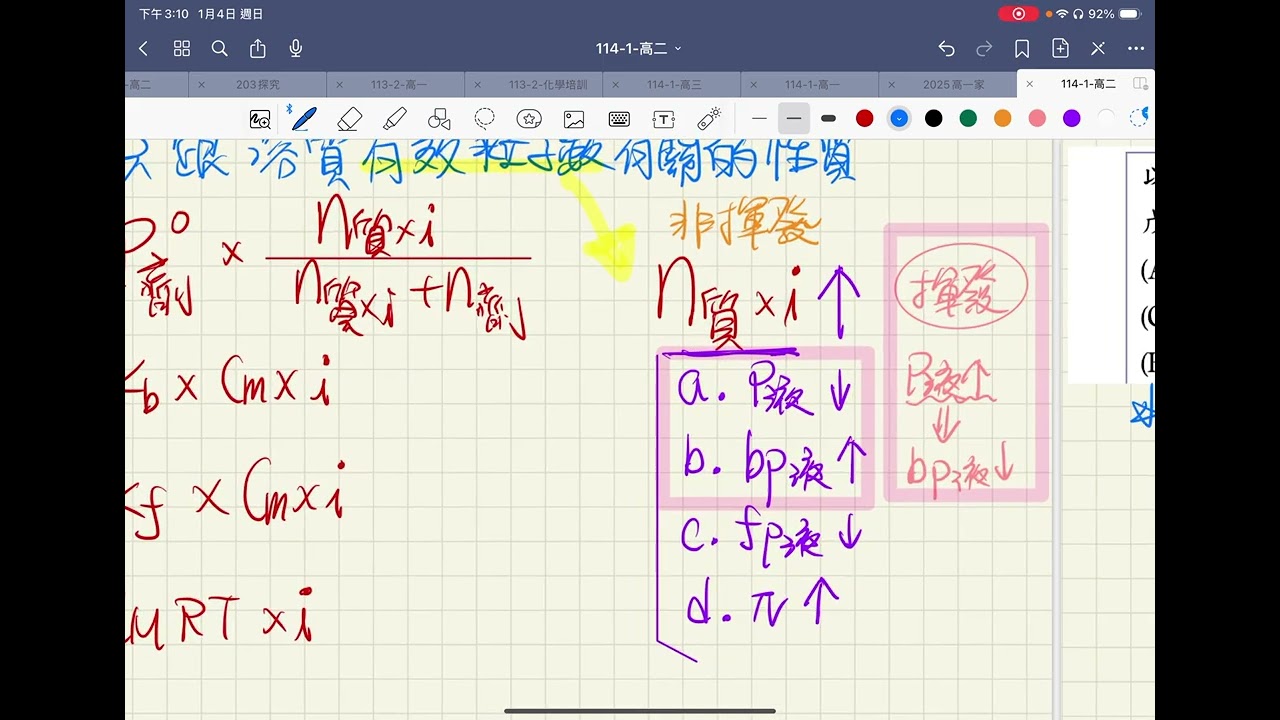 下午3:10 1月4日 週日
92%
114-1-高二
-高二
203探究
113-2-高一
113-2-化學培訓
114-1-高三
114-1-高一
2025高一家
114-1-高二
跟溶質有效粒子數有關的性質
P°劑 × n質×i / n質×i + n劑
Kb × Cm × i
Kf × Cm × i
CMRT × i
非揮發
n質 × i ↑
a. P液 ↓
b. bp液 ↑
c. fp液 ↓
d. π ↑
揮發
P液↑
⇓
bp液↓
(A
(C
(E